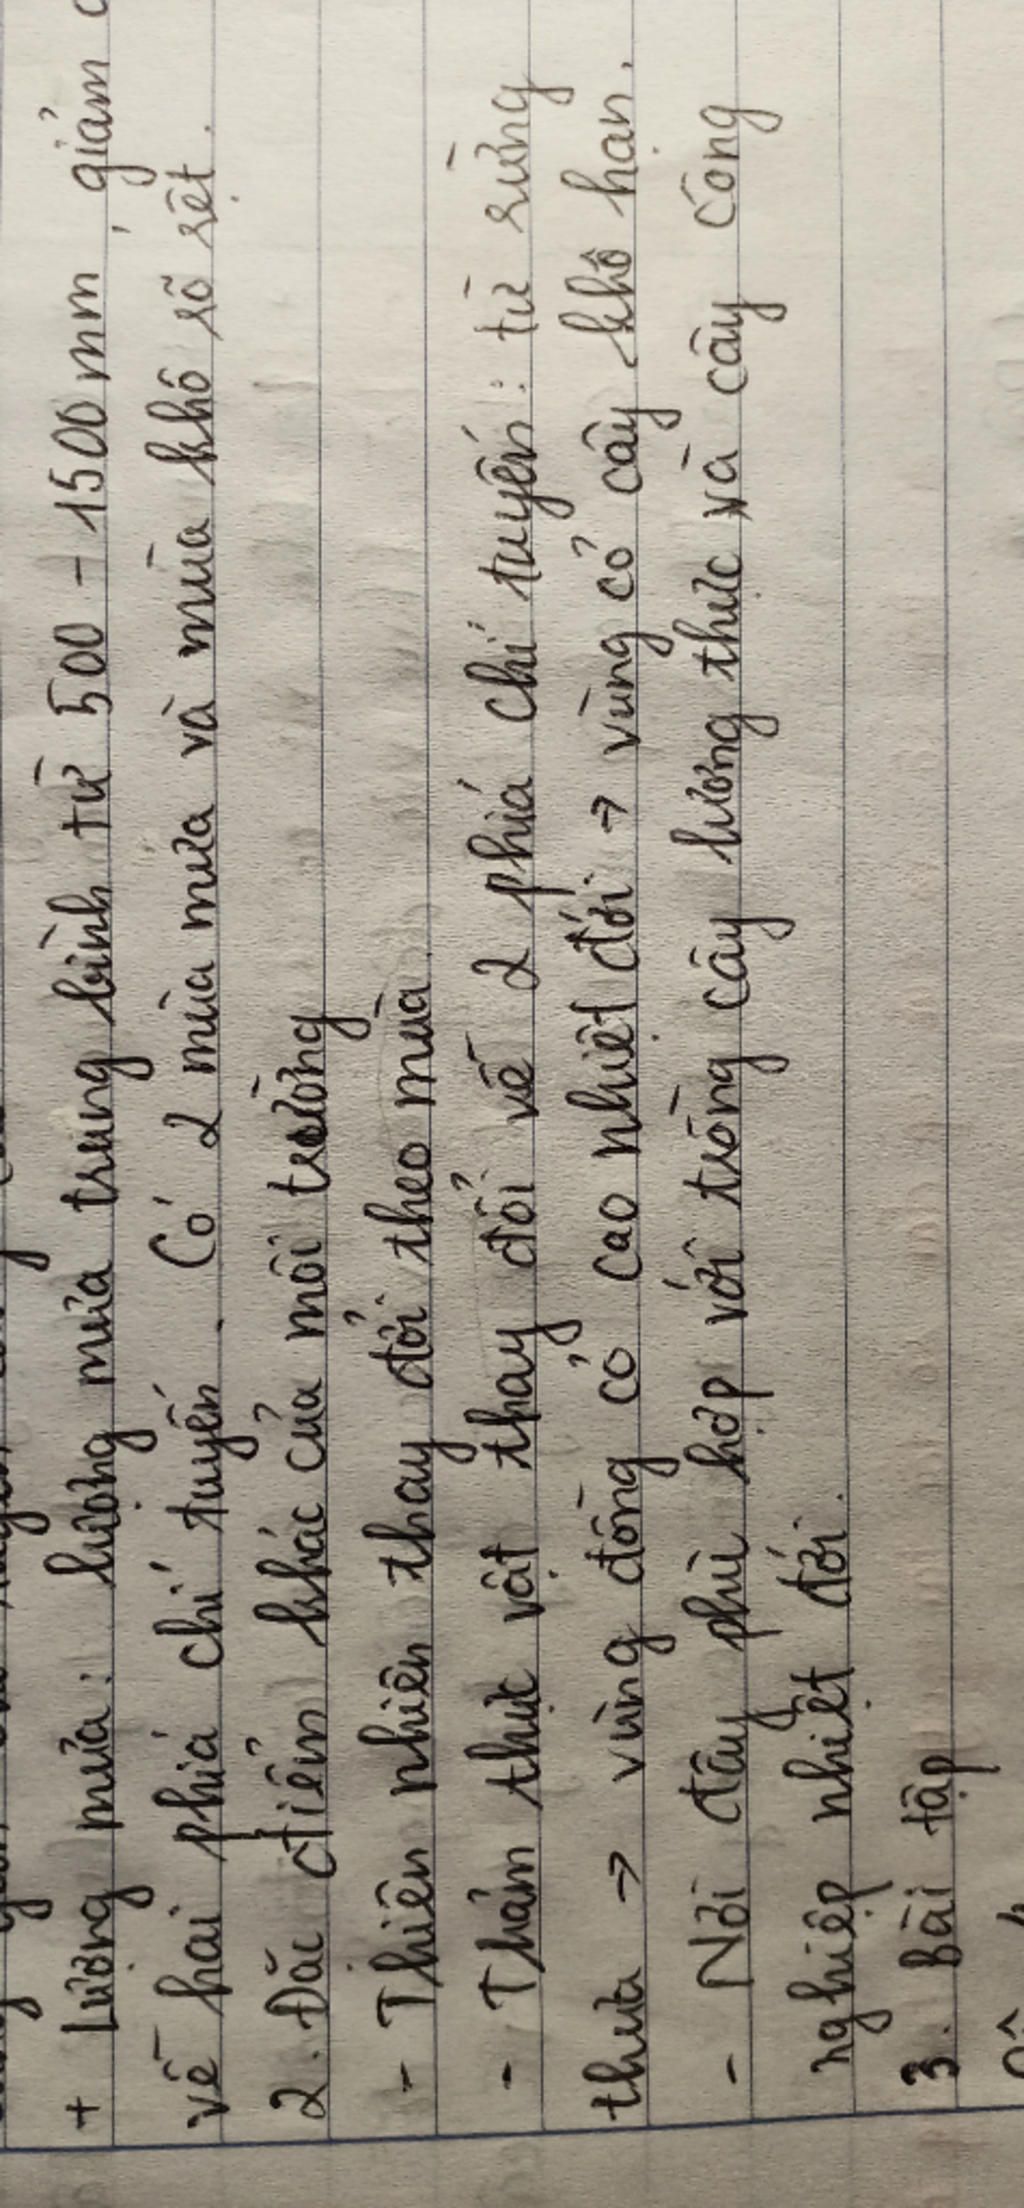 + Lượng mưa: lượng mưa trung bình từ 500 - 1500 mm, giảm
về hai phía chí tuyến. Có 2 mùa mưa và mùa khô rõ rệt.
2. Đặc điểm khác của môi trường
- Thiên nhiên thay đổi theo mùa.
- Thảm thực vật thay đổi về 2 phía chí tuyến: từ rừng
thưa → vùng đồng cỏ cao nhiệt đới → vùng cỏ cây khô hạn.
- Nơi đây phù hợp với trồng cây lương thực và cây công
nghiệp nhiệt đới.
3. Bài tập